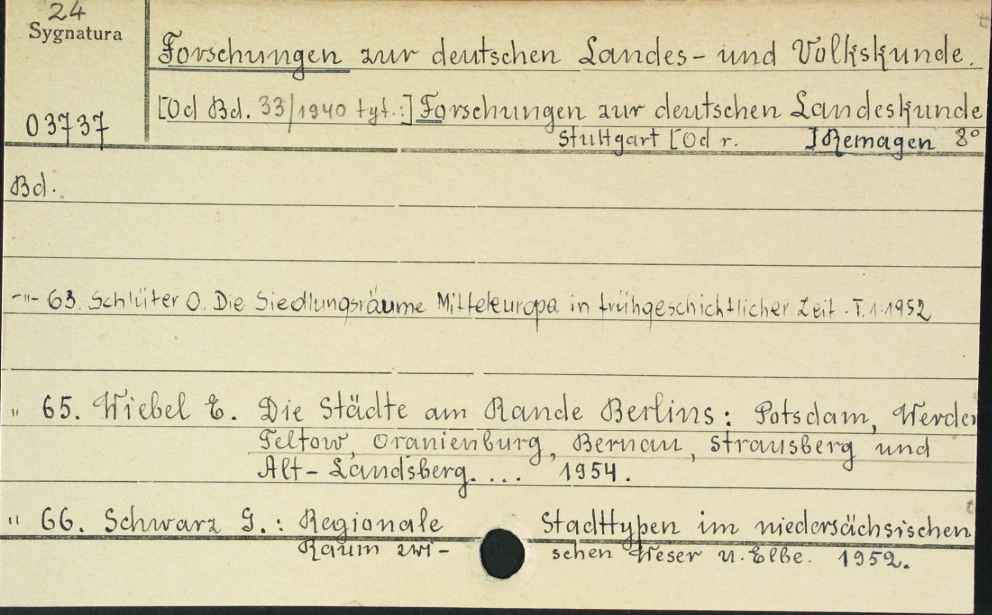 24
Sygnatura
03737
Forschungen zur deutschen Landes- und Volkskunde.
[Od Bd. 33/1940 tyt.:] Forschungen zur deutschen Landeskunde
Stuttgart [Od r. ] Remagen 8°
Bd.
-"- 63. Schlüter O. Die Siedlungsräume Mitteleuropa in frühgeschichtlicher Zeit. T.1. 1952
" 65. Wiebel E. Die Städte am Rande Berlins: Potsdam, Werder
Teltow, Oranienburg, Bernau, Strausberg und
Alt-Landsberg. ... 1954.
" 66. Schwarz G.: Regionale Stadttypen im niedersächsischen
Raum zwi- schen Weser u. Elbe. 1952.